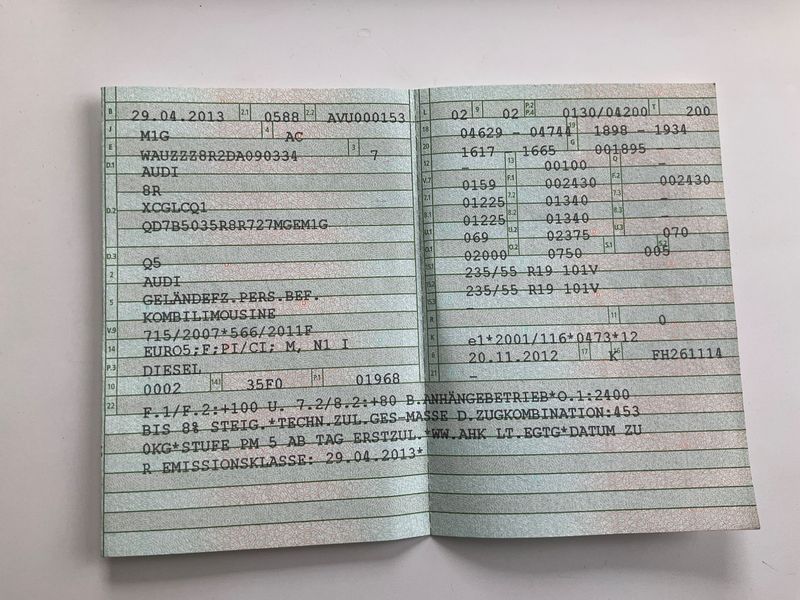 B 29.04.2013 2.1 0588 2.2 AVU000153
J M1G 4 AC
E WAUZZZ8R2DA090334 3 7
D.1 AUDI
8R
D.2 XCGLCQ1
QD7B5035R8R727MGEM1G
D.3 Q5
2 AUDI
5 GELÄNDEFZ.PERS.BEF.
KOMBILIMOUSINE
V.9 715/2007*566/2011F
14 EURO5;F;PI/CI; M, N1 I
P.3 DIESEL
10 0002 14.1 35F0 P.1 01968
L 02 9 02 P.2 P.4 0130/04200 T 200
18 04629 - 04744 19 1898 - 1934
20 1617 - 1665 G 001895
12 - 13 00100 Q -
V.7 0159 F.1 002430 F.2 002430
7.1 01225 7.2 01340 7.3 -
8.1 01225 8.2 01340 8.3 -
U.1 069 U.2 02375 U.3 070
O.1 02000 O.2 0750 S.1 005 S.2
15.1 235/55 R19 101V
15.2 235/55 R19 101V
15.3 -
R 11 0
K e1*2001/116*0473*12
6 20.11.2012 17 K 16 FH261114
21 -
22 F.1/F.2:+100 U. 7.2/8.2:+80 B.ANHÄNGEBETRIEB*O.1:2400
BIS 8% STEIG.*TECHN.ZUL.GES-MASSE D.ZUGKOMBINATION:453
0KG*STUFE PM 5 AB TAG ERSTZUL.*WW.AHK LT.EGTG*DATUM ZU
R EMISSIONSKLASSE: 29.04.2013*